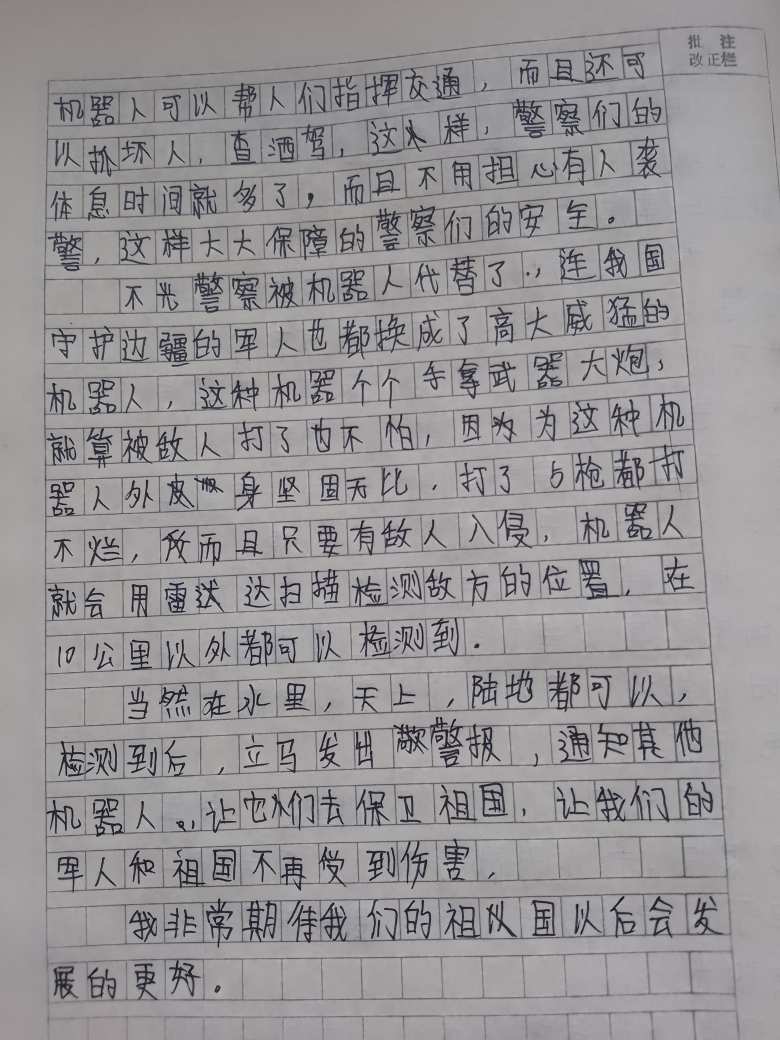 批 注
改正栏
机器人可以帮人们指挥交通，而且还可
以抓坏人，查酒驾，这样，警察们的
体息时间就多了，而且不用担心有人袭
警，这样大大保障的警察们的安全。
不光警察被机器人代替了，连我国
守护边疆的军人也都换成了高大威猛的
机器人，这种机器个个手拿武器大炮，
就算被敌人打了也不怕，因为这种机
器人外皮身坚固无比，打了5枪都打
不烂，而且只要有敌人入侵，机器人
就会用雷达扫描检测敌方的位置，在
10公里以外都可以检测到.
当然在水里，天上，陆地都可以，
检测到后，立马发出警报，通知其他
机器人。让它们去保卫祖国，让我们的
军人和祖国不再受到伤害，
我非常期待我们的祖国以后会发
展的更好。